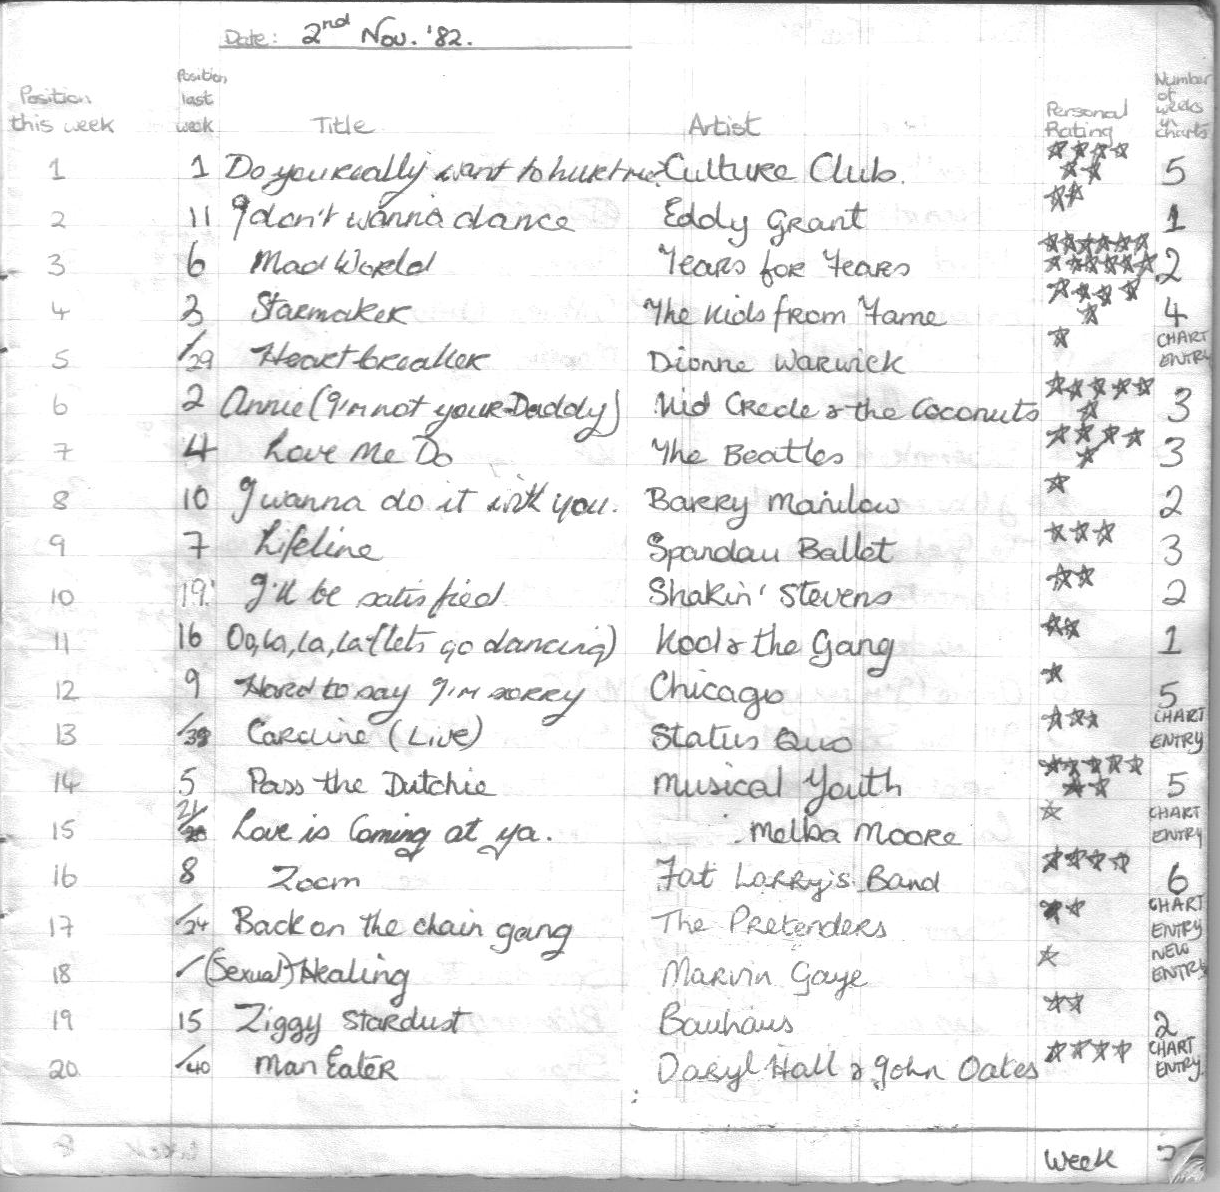 Date: 2nd Nov. '82.
Position this week Position last week Title Artist Personal Rating Number of weeks in charts
1 1 Do you really want to hurt me Culture Club. ☆☆☆☆☆☆ 5
2 11 I don't wanna dance Eddy Grant ☆☆ 1
3 6 Mad World Tears for Tears ☆☆☆☆☆☆☆☆☆☆☆☆ 2
4 3 Starmaker The Kids from Fame ☆☆☆☆☆ 4
5 /29 Heartbreaker Dionne Warwick ☆ CHART ENTRY
6 2 Annie (I'm not your Daddy) Kid Creole & the Coconuts ☆☆☆☆☆☆ 3
7 4 Love Me Do The Beatles ☆☆☆☆☆ 3
8 10 I wanna do it with you. Barry Manilow ☆ 2
9 7 Lifeline Spandau Ballet ☆☆☆ 3
10 19 I'll be satisfied Shakin' Stevens ☆☆ 2
11 16 Oo, la, la, la (lets go dancing) Kool & the Gang ☆☆ 1
12 9 Hard to say I'm sorry Chicago ☆ 5
13 Caroline (Live) Status Quo ☆☆☆ CHART ENTRY
14 5 Pass the Dutchie Musical Youth ☆☆☆☆☆☆☆ 5
15 21/ Love is Coming at ya. Melba Moore ☆ CHART ENTRY
16 8 Zoom Fat Larry's Band ☆☆☆☆ 6
17 /24 Back on the chain gang The Pretenders ☆☆ CHART ENTRY
18 / (Sexual) Healing Marvin Gaye ☆ NEW ENTRY
19 15 Ziggy Stardust Bauhaus ☆☆ 2
20 /40 Man Eater Daryl Hall & John Oates ☆☆☆☆ CHART ENTRY
Week